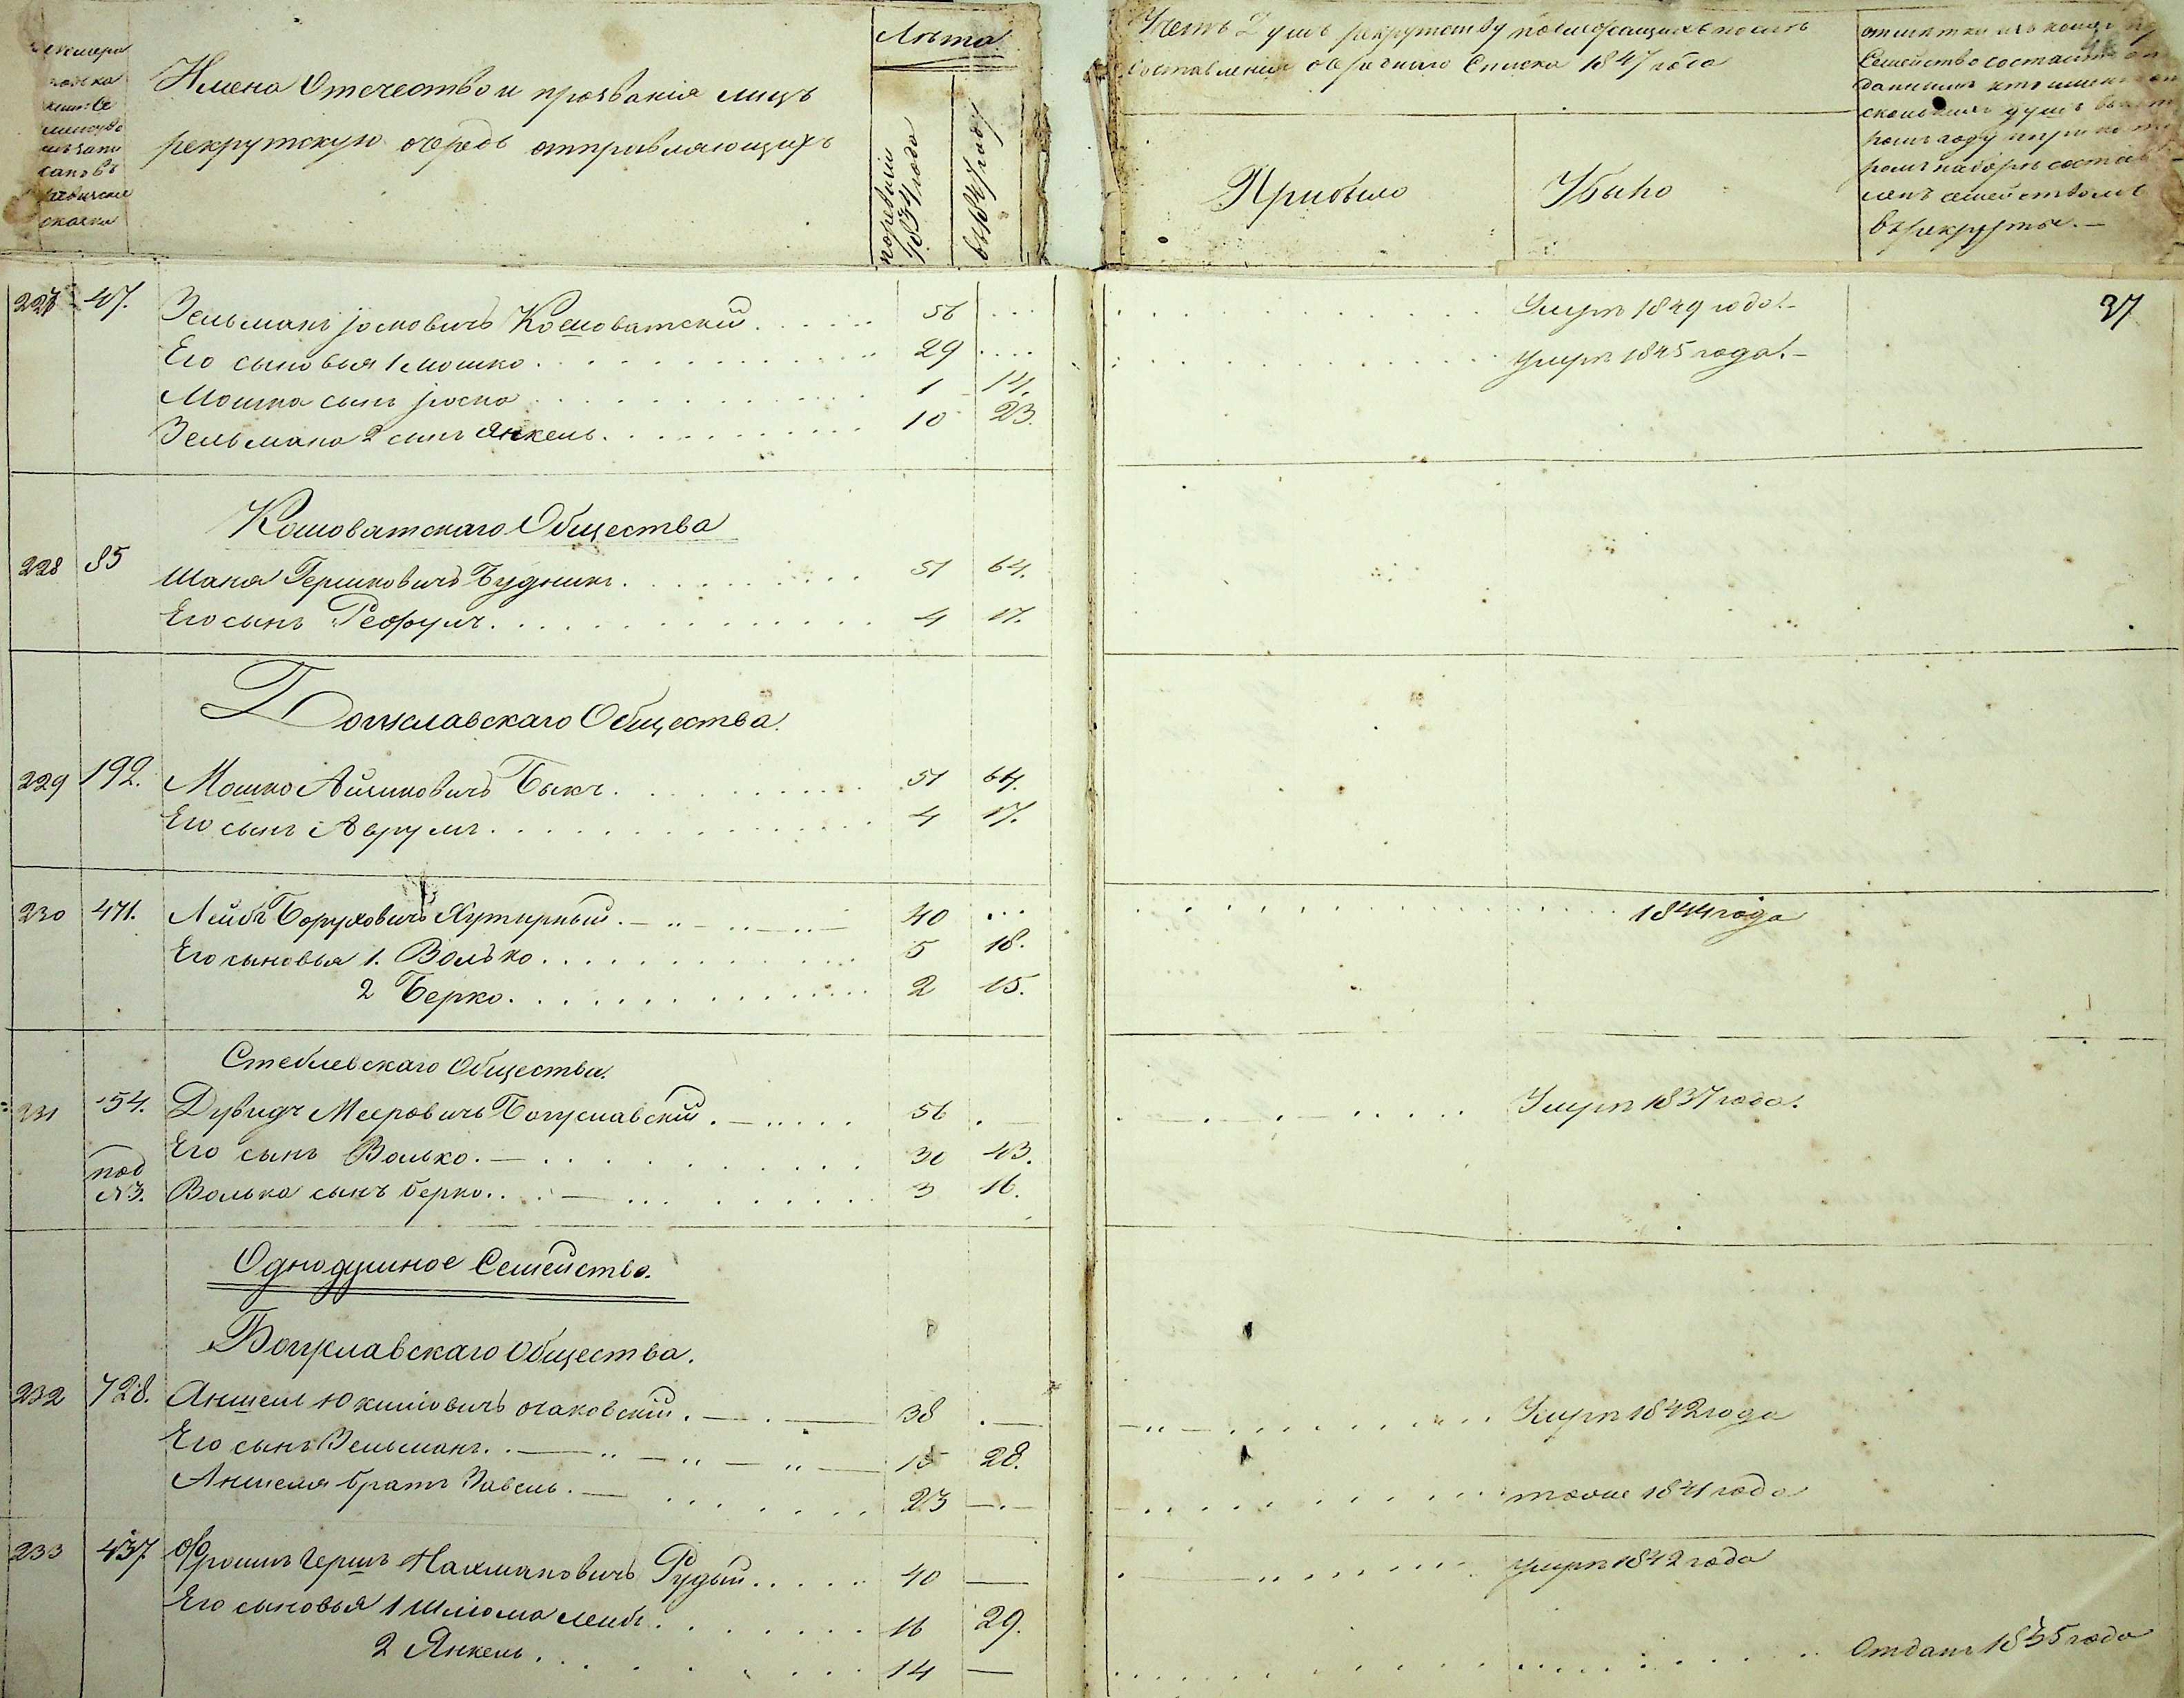 Имена Отечество и прозванія лицъ
рекрутскую очередь отправляющихъ
Лѣта
по ревизіи 1834 года
въ 1847 году
Счетъ душъ рекрутству подлежащихъ послѣ
составленія очереднаго Списка 1847 года
Прибыло
Убыло
Семейство состоитъ
въ рекруты. —
37
227 47. Зельманъ Іосковичъ Кошоватскій 56 ... Умре 1849 года. —
Его сыновья 1 Мошко 29 .... умре 1845 года. —
Мошка сынъ Іоско 1 14.
Зельмана 2 сынъ Янкель 10 23.
Кошоватскаго Общества
228 85 Шака Гершковичъ Будникъ 51 64.
Его сынъ 4 17.
Богуславскаго Общества.
229 192. Мошко Айзиковичъ Быкъ 51 64.
Его сынъ Аврумъ 4 17.
230 471. Лейбъ Боруховичъ Хутирный 40 ... 1844 года
Его сыновья 1. Волько 5 18.
2 Берко 2 15.
Стеблевскаго Общества.
231 54. Дувидъ Мееровичъ Богуславскій 56 Умре 1837 года.
Его сынъ Волько. 30 43.
под №3. Волька сынъ Берко 3 16.
Однодушное Семейство.
Богуславскаго Общества.
232 728. Аншель Юкилiовичъ Очаковскій 38 Умре 1842 года
Его сынъ Зельманъ 15 28.
Аншеля братъ Завель 23 — тоже 1841 года
233 437 Фроимъ Гершъ Нахмановичъ Рудый 40 — умре 1842 года
Его сыновья 1 Шліома Лейбъ 16 29.
2 Янкель 14 — Отданъ 1835 года